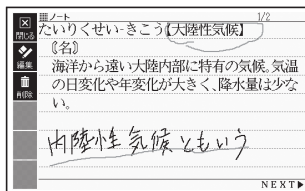 ノート 1/2
閉じる
編集
削除
たいりくせい‐きこう【大陸性気候】
〘名〙
海洋から遠い大陸内部に特有の気候。気温
の日変化や年変化が大きく、降水量は少な
い。
内陸性気候ともいう
NEXT▶